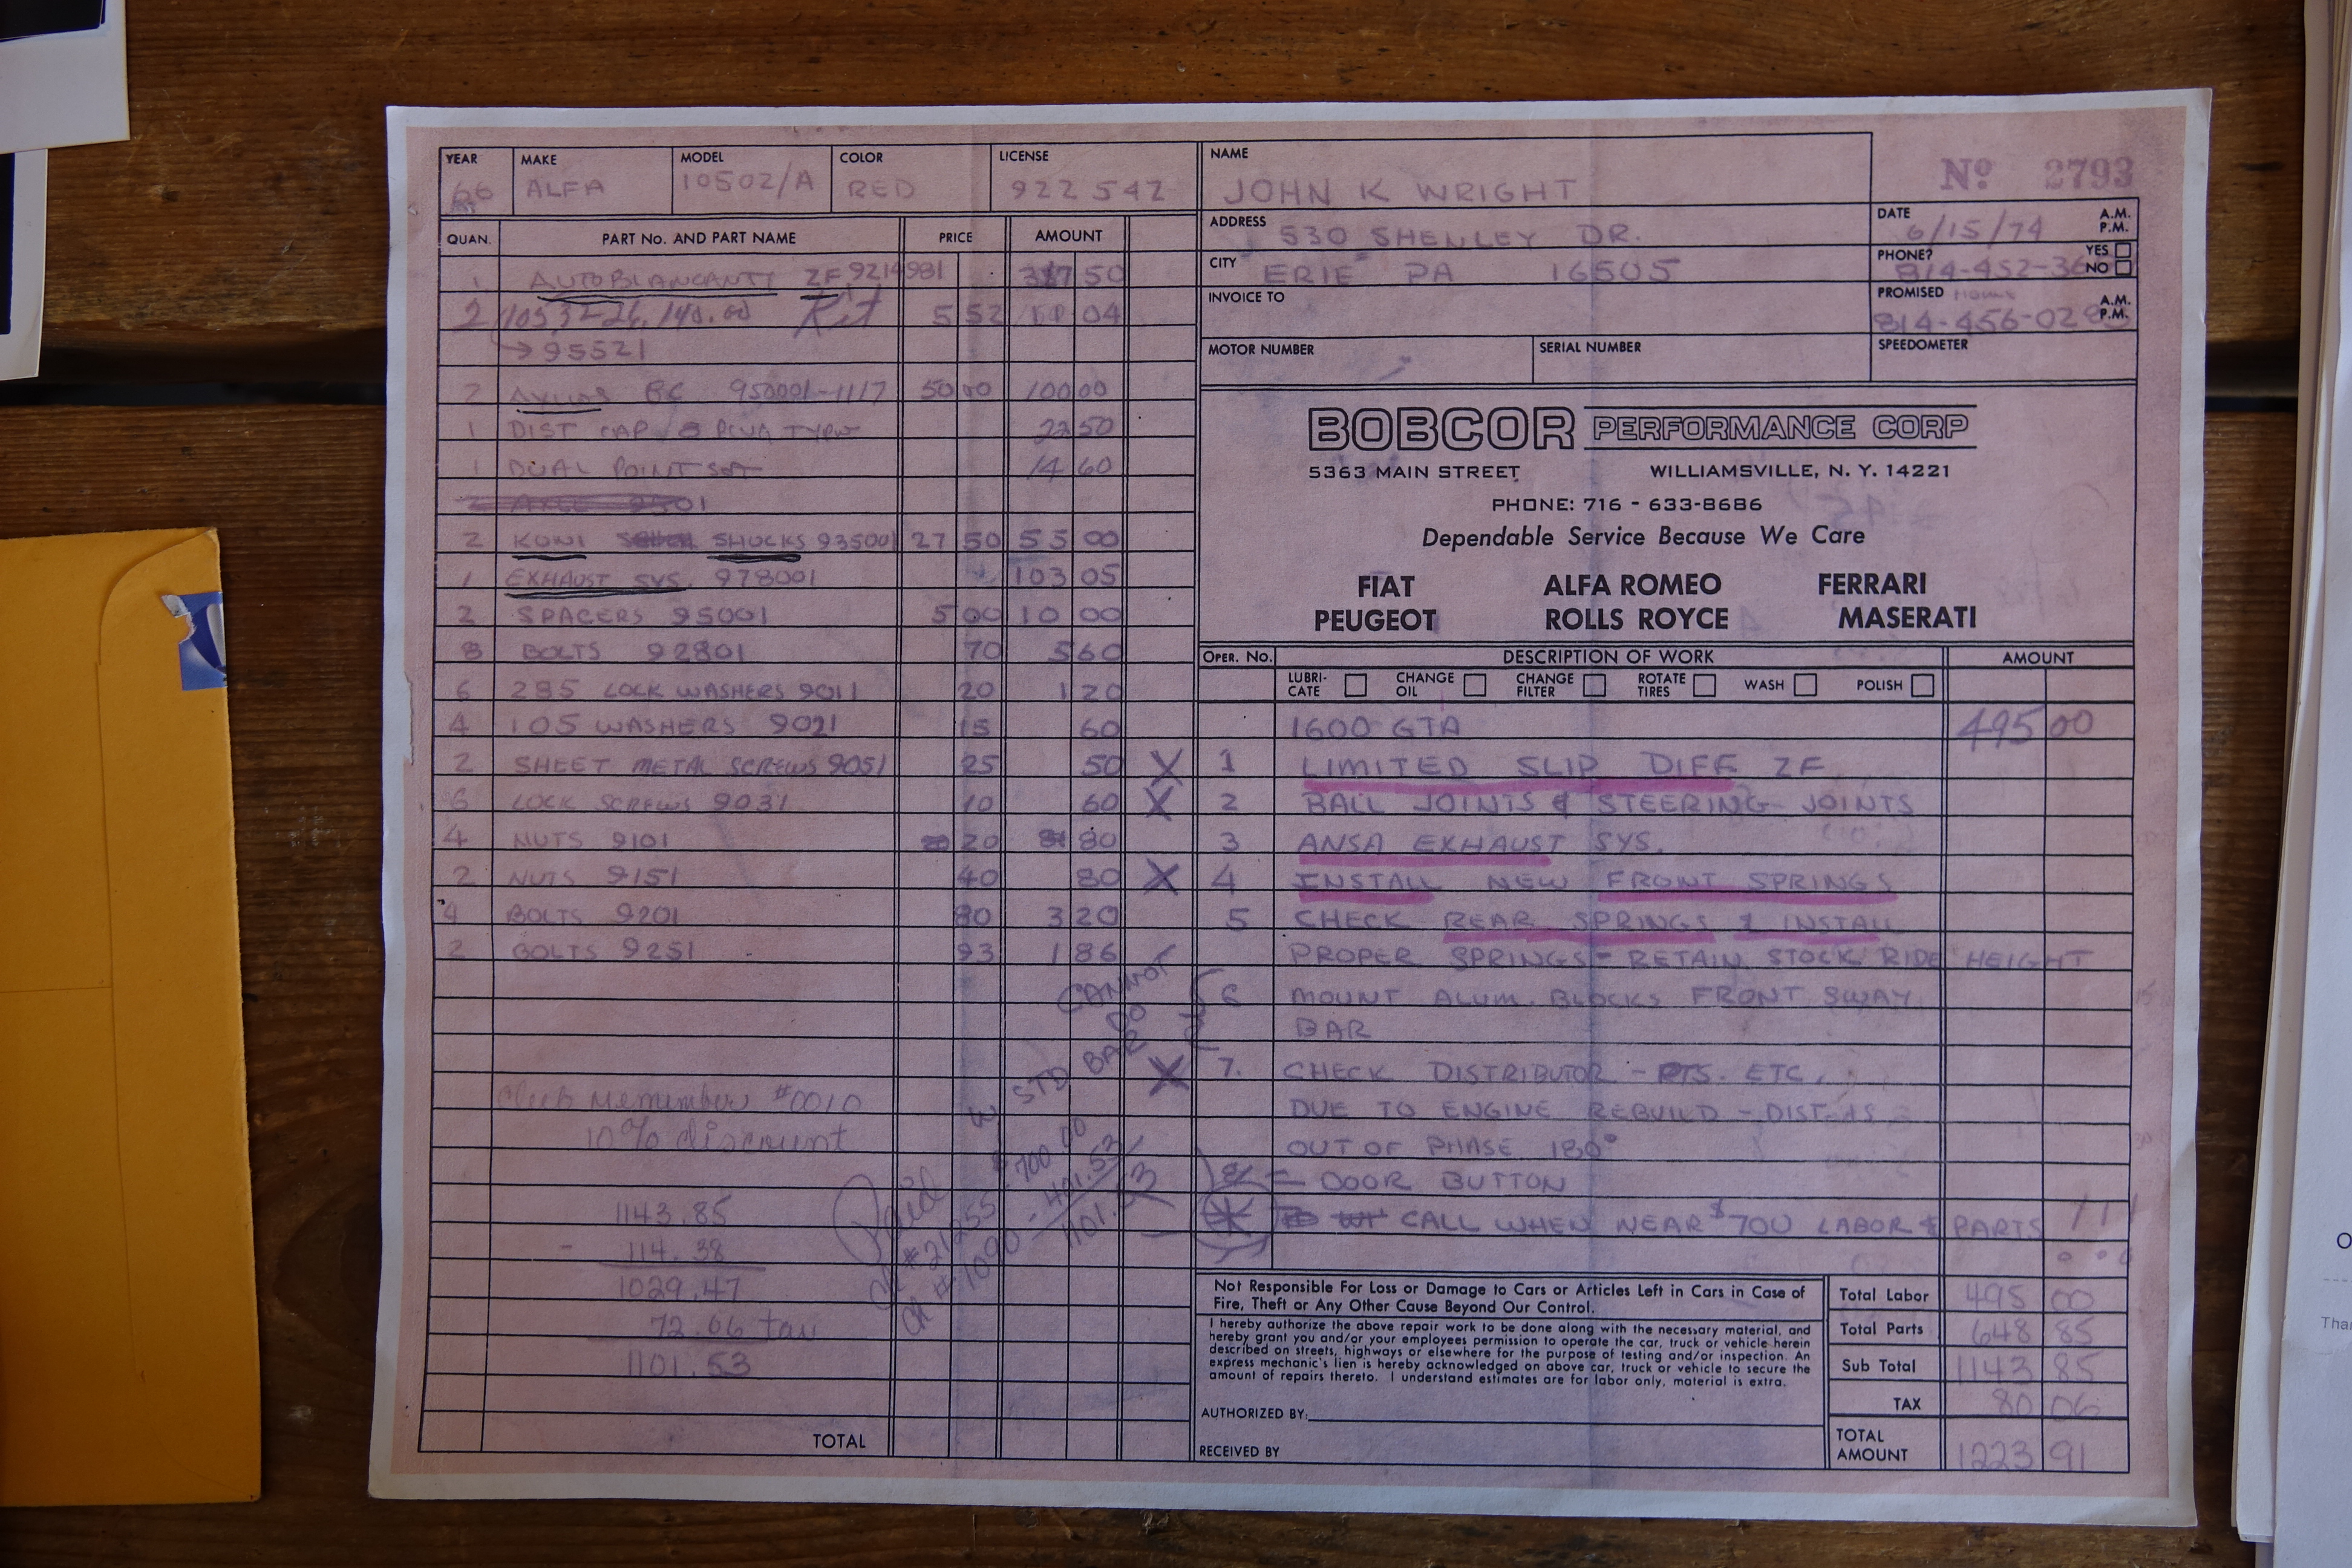 YEAR MAKE MODEL COLOR LICENSE
66 ALFA 10502/A RED 922 542
QUAN. PART No. AND PART NAME PRICE AMOUNT
1 AUTOBLANCANTY ZF 9214981 50
2 10532-26.140.00 Kit 5 52 04
→ 95521
2 BC 950001-1117 50 00 100 00
1 DIST CAP 22 50
1 DUAL POINT SET 14 60
2 KONI SHOCKS 935001 27 50 55 00
1 EXHAUST SYS. 978001 103 05
2 SPACERS 95001 5 00 10 00
8 BOLTS 92801 70 5 60
6 285 LOCK WASHERS 9011 20 1 20
4 105 WASHERS 9021 15 60
2 SHEET METAL SCREWS 9051 25 50 X
6 LOCK SCREWS 9031 10 60 X
4 NUTS 9101 20 80
2 NUTS 9151 40 80 X
4 BOLTS 9201 80 3 20
2 BOLTS 9251 93 1 86
CANNOT
DO
W STD BAR
X
Club Memember #0010
10% discount
1143.85
- 114.38
1029.47
72.06 tax
1101.53
Paid
CK #21255 $700.00
CK #1090 - 401.53
1101.53
TOTAL
NAME
JOHN K WRIGHT
No 2793
ADDRESS 530 SHENLEY DR.
DATE 6/15/74 A.M. P.M.
CITY ERIE PA 16505
PHONE? 814-452-36 YES NO
INVOICE TO
PROMISED A.M. P.M.
814-456-028
MOTOR NUMBER SERIAL NUMBER SPEEDOMETER
BOBCOR PERFORMANCE CORP
5363 MAIN STREET WILLIAMSVILLE, N. Y. 14221
PHONE: 716 - 633-8686
Dependable Service Because We Care
FIAT ALFA ROMEO FERRARI
PEUGEOT ROLLS ROYCE MASERATI
OPER. No. DESCRIPTION OF WORK AMOUNT
LUBRI-CATE CHANGE OIL CHANGE FILTER ROTATE TIRES WASH POLISH
1600 GTA 495 00
1 LIMITED SLIP DIFF ZF
2 BALL JOINTS & STEERING JOINTS
3 ANSA EXHAUST SYS.
4 INSTALL NEW FRONT SPRINGS
5 CHECK REAR SPRINGS & INSTALL
PROPER SPRINGS - RETAIN STOCK RIDE HEIGHT
6 MOUNT ALUM. BLOCKS FRONT SWAY
BAR
7. CHECK DISTRIBUTOR - PTS. ETC.
DUE TO ENGINE REBUILD - DIST. IS
OUT OF PHASE 180°
8 DOOR BUTTON
CALL WHEN NEAR $700 LABOR & PARTS !!!
Not Responsible For Loss or Damage to Cars or Articles Left in Cars in Case of
Fire, Theft or Any Other Cause Beyond Our Control.
I hereby authorize the above repair work to be done along with the necessary material, and
hereby grant you and/or your employees permission to operate the car, truck or vehicle herein
described on streets, highways or elsewhere for the purpose of testing and/or inspection. An
express mechanic's lien is hereby acknowledged on above car, truck or vehicle to secure the
amount of repairs thereto. I understand estimates are for labor only, material is extra.
AUTHORIZED BY:
RECEIVED BY
Total Labor 495 00
Total Parts 648 85
Sub Total 1143 85
TAX 80 06
TOTAL AMOUNT 1223 91